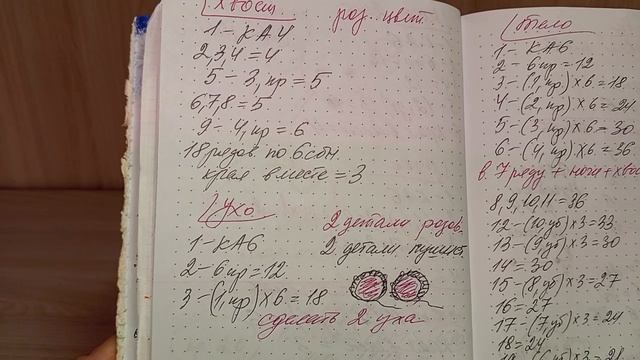 Хвост роз. цвет.
1 - КА4
2,3,4 = 4
5 - 3, пр = 5
6,7,8 = 5
9 - 4, пр = 6
18 рядов по 6 сбн
края вместе = 3
Ухо
2 детали розов.
1 - КА6 2 детали
2 - 6 пр = 12
3 - (1, пр) х 6 = 18
сделать 2 уха
Тело
1 - КА6
2 - 6 пр = 12
3 - (1, пр) х 6 = 18
4 - (2, пр) х 6 = 24
5 - (3, пр) х 6 = 30
6 - (4, пр) х 6 = 36
в 7 ряду + ноги + хвос
8, 9, 10, 11 = 36
12 - (10, уб) х 3 = 33
13 - (9 уб) х 3 = 30
14 = 30
15 - (8 уб) х 3 = 27
16 = 27
17 - (7 уб) х 3 = 24
18 = 24